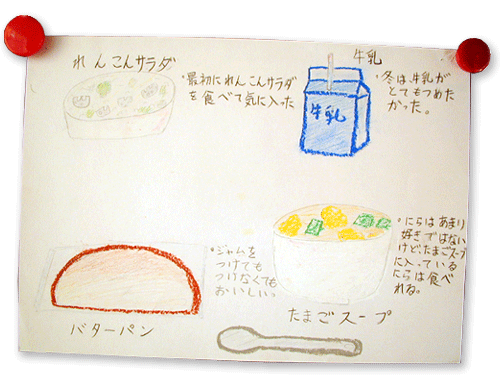 れんこんサラダ
・最初にれんこんサラダ
を食べて気に入った
牛乳
牛乳
・冬は、牛乳が
とてもつめた
かった。
・ジャムを
つけても
つけなくても
おいしい。
バターパン
・にらはあまり
好きではない
けどたまごスープ
に入っている
にらは食べ
れる。
たまごスープ